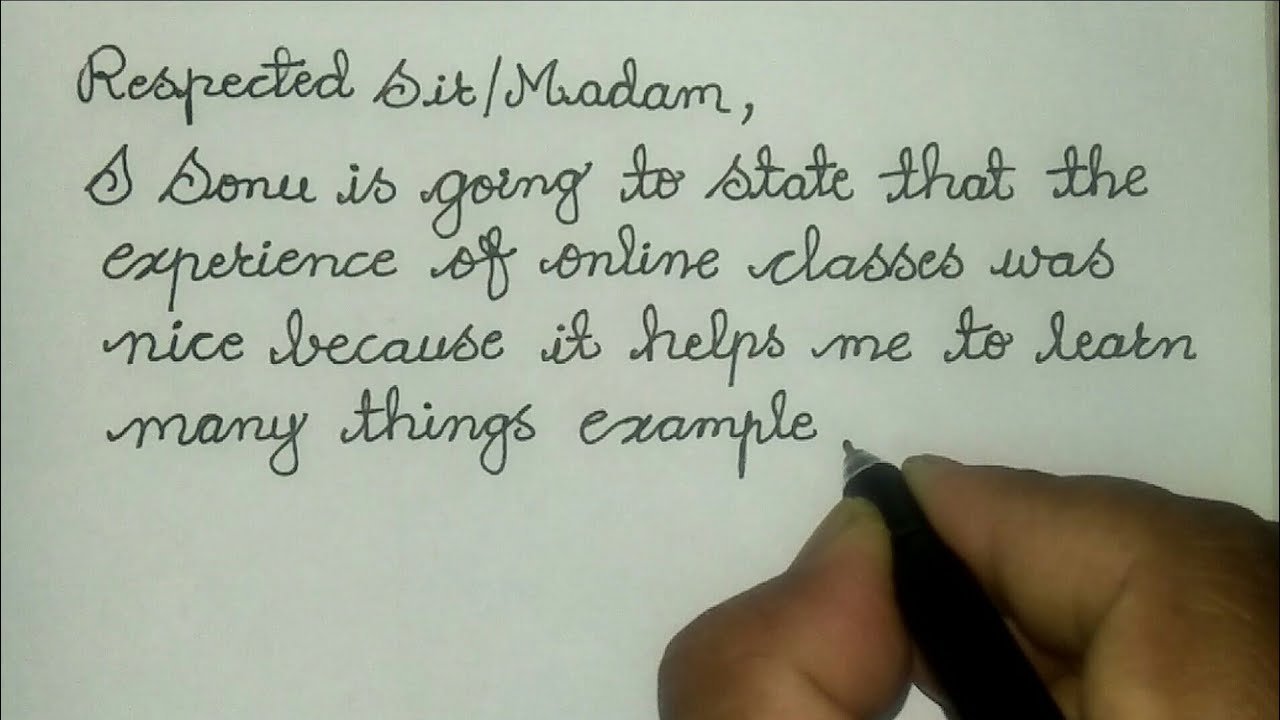 Respected Sir/Madam,
I Sonu is going to state that the
experience of online classes was
nice because it helps me to learn
many things example